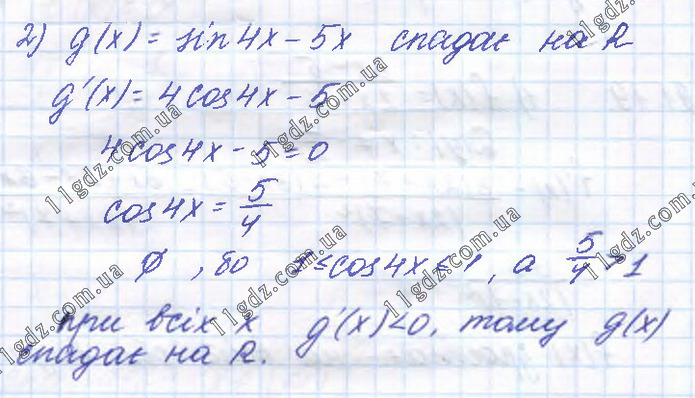 2) g(x) = sin 4x - 5x спадає на R
g'(x) = 4cos4x - 5
4cos4x - 5 = 0
cos4x = 5/4
∅, бо -1 ≤ cos4x ≤ 1, а 5/4 > 1
при всіх x g'(x) < 0, тому g(x)
спадає на R.
11gdz.com.ua
11gdz.com.ua
11gdz.com.ua
11gdz.com.ua
11gdz.com.ua
11gdz.com.ua